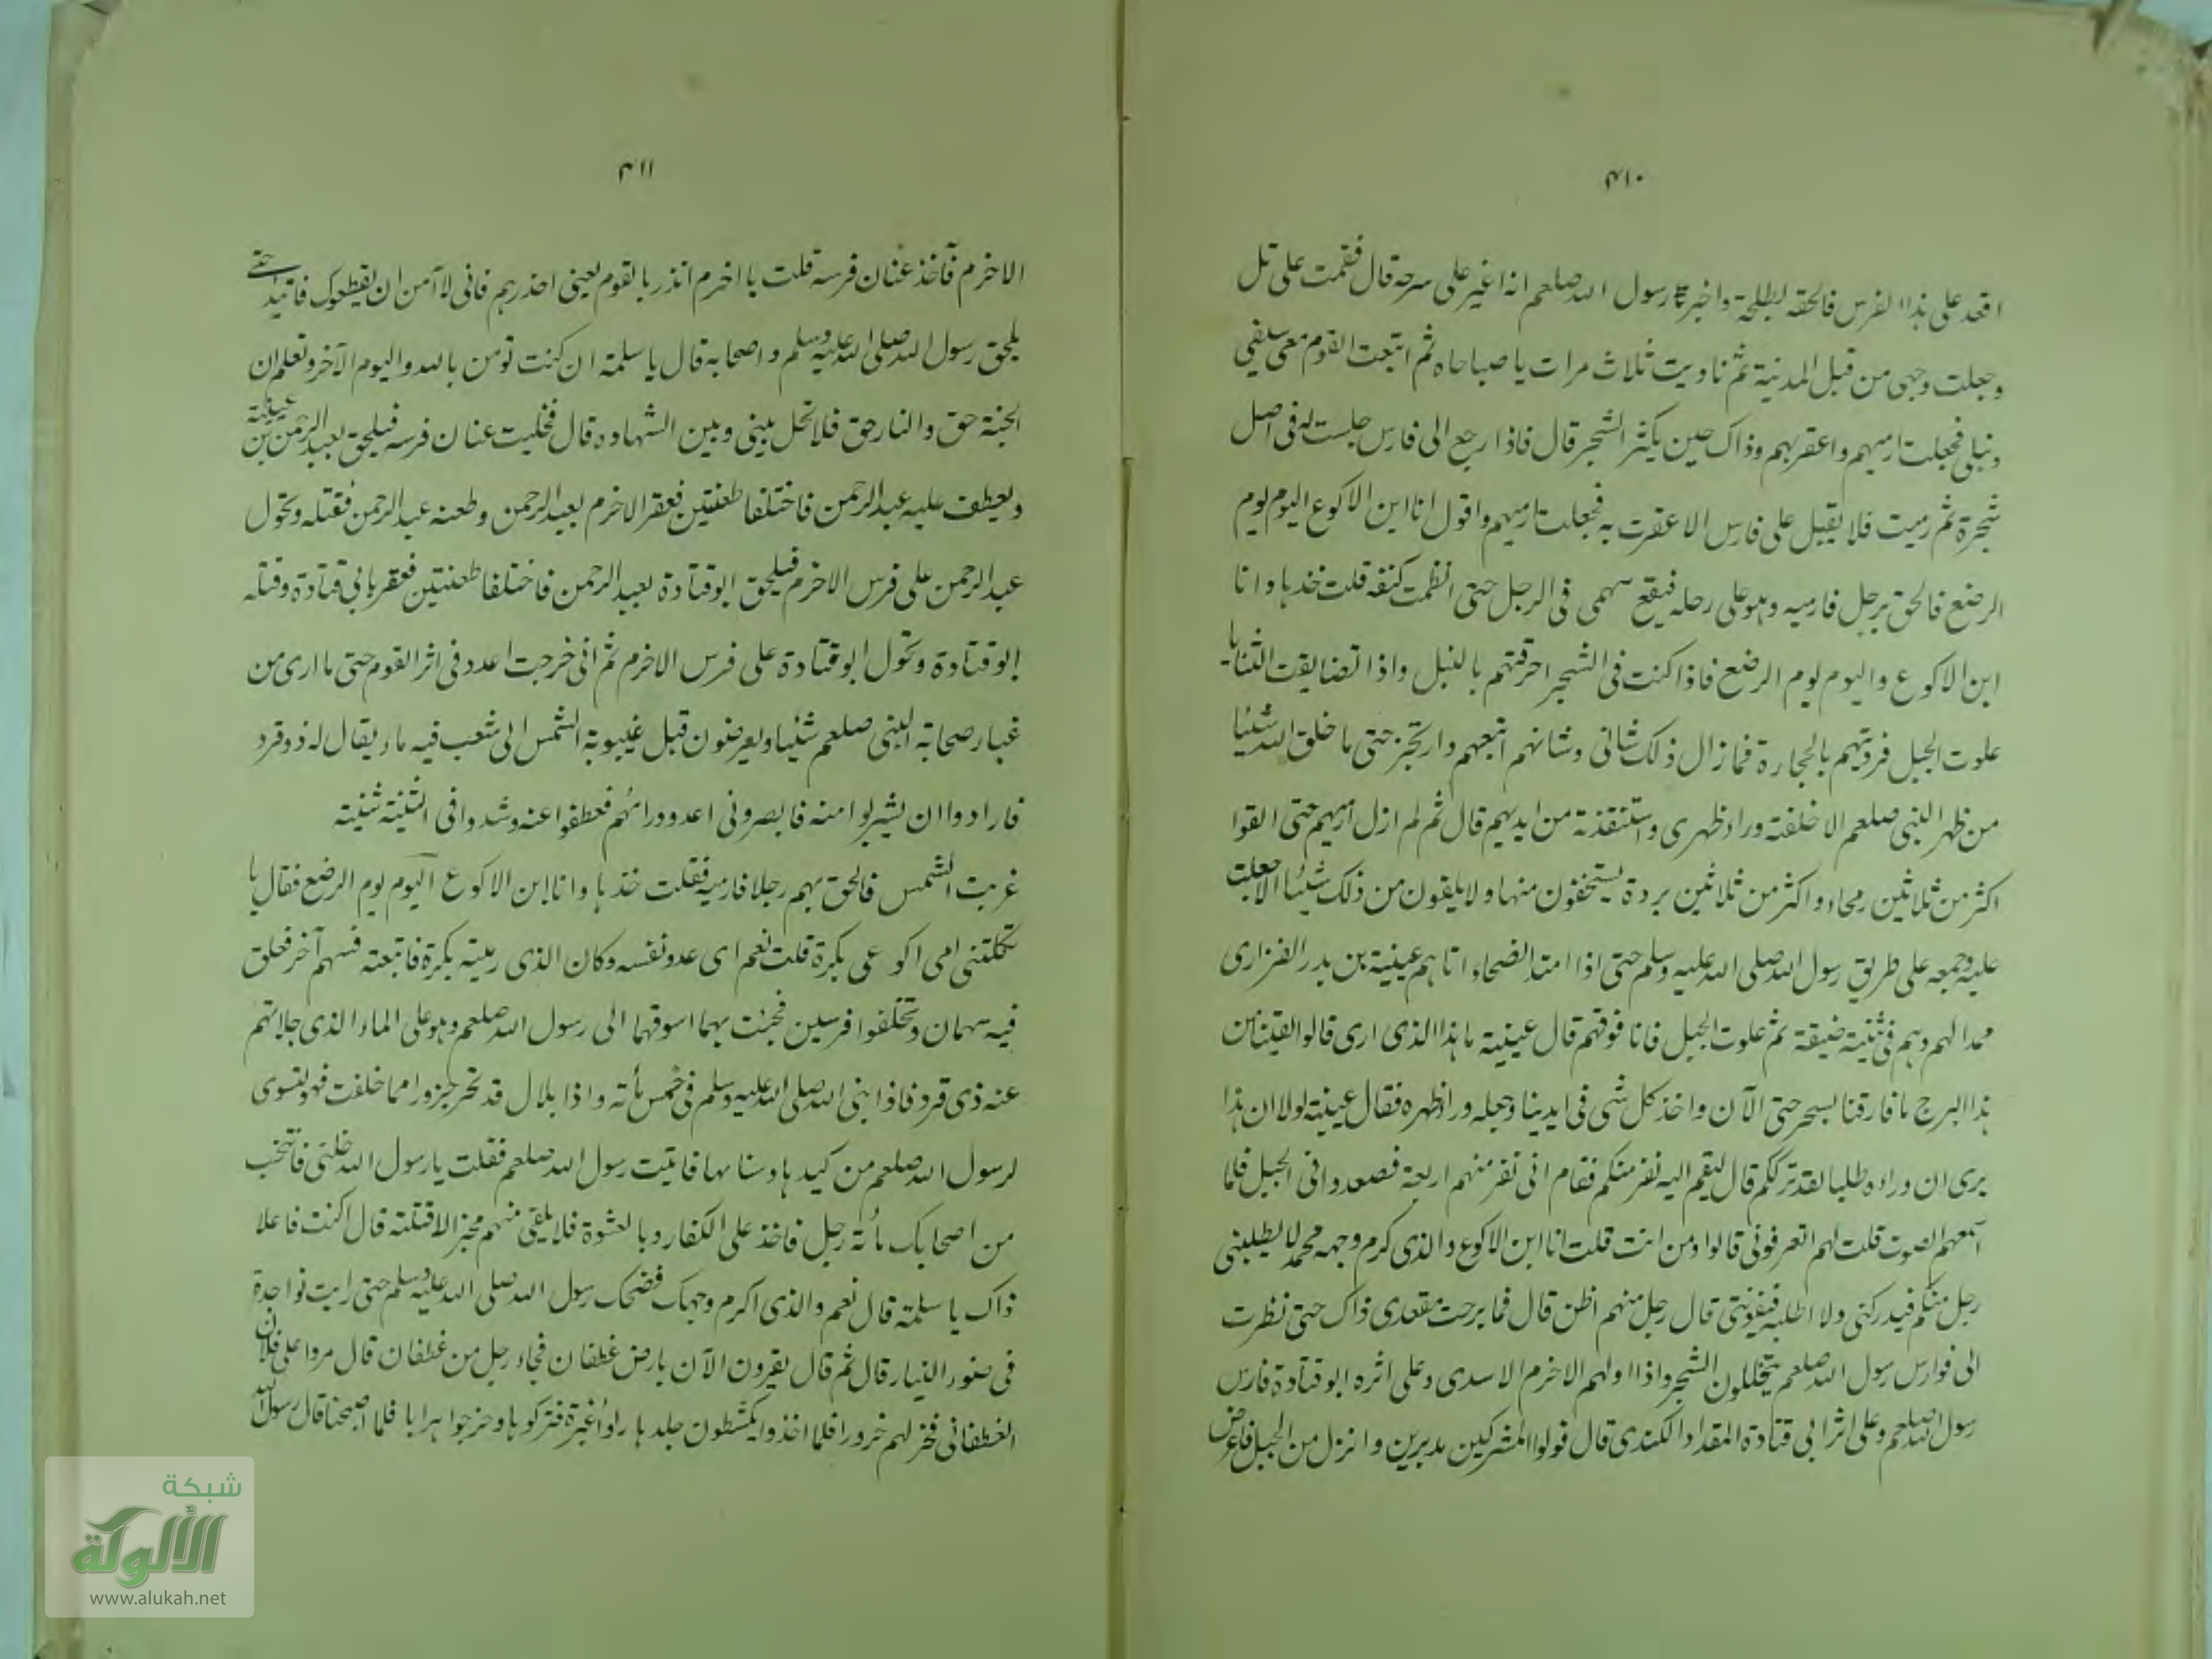 ۴۱۰
اقعد على هذا الفرس فالحقه بطلحة واخبر رسول الله صلعم انه اغير على سرحه قال فقمت على تل
وجعلت وجهى من قبل المدينة ثم ناديت ثلاث مرات يا صباحاه ثم اتبعت القوم معى سيفى
ونبلى فجعلت ارميهم واعقر بهم وذاك حين يكثر الشجر قال فاذا رجع الى فارس جلست له فى اصل
شجرة ثم رميت فلا يقبل على فارس الا عقرت به فجعلت ارميهم واقول انا ابن الاكوع اليوم يوم
الرضع فالحق برجل فارميه وهو على رحله فيقع سهمى فى الرجل حتى انظمت كتفه قلت خذها وانا
ابن الاكوع واليوم يوم الرضع فاذا كنت فى الشجر احرقتهم بالنبل واذا تضايقت الثنايا
علوت الجبل فرديتهم بالحجارة فما زال ذلك شانى وشانهم اتبعهم وارتجز حتى ما خلق الله شيئا
من ظهر النبى صلعم الا خلفته وراء ظهرى واستنقذته من ايديهم قال ثم لم ازل ارميهم حتى القوا
اكثر من ثلاثين رمحاء واكثر من ثلاثين بردة يستخفون منها ولا يلقون من ذلك شيئا الا جعلت
عليه وجمعه على طريق رسول الله صلى الله عليه وسلم حتى اذا امتد الضحاء اتاهم عيينة بن بدر الفزارى
ممدا لهم وهم فى ثنية ضيقة ثم علوت الجبل فانا فوقهم قال عيينة ما هذا الذى ارى قالوا لقينا من
هذا البرح ما فارقنا بسحر حتى الآن واخذ كل شى فى ايدينا وجعله وراء ظهره فقال عيينة لولا ان هذا
يرى ان وراءه طلبا لقد ترككم قال ليقم اليه نفر منكم فقام انى نفر منهم اربعة فصعدوا فى الجبل فلما
اسمعهم الصوت قلت لهم اتعرفونى قالوا ومن انت قلت انا ابن الاكوع والذى كرم وجهه محمد لا يطلبنى
رجل منكم فيدركنى ولا اطلبه فيفوتنى قال رجل منهم اظن قال فما برحت مقعدى ذاك حتى نظرت
الى فوارس رسول الله صلعم يتخللون الشجر واذا اولهم الاخرم الاسدى وعلى اثره ابو قتادة فارس
رسول الله صلعم وعلى اثر ابى قتادة المقداد الكندى قال فولوا المشركين مدبرين وانزل من الجبل فاعرض
۴۱۱
الاخرم فآخذ عنان فرسه قلت يا اخرم انذر بالقوم يعنى احذرهم فانى لا آمن ان يقطعوك فاتئد حتى
يلحق رسول الله صلى الله عليه وسلم واصحابه قال يا سلمة ان كنت تومن بالله واليوم الآخر وتعلم ان
الجنة حق والنار حق فلا تحل بينى وبين الشهاده قال فخليت عنان فرسه فيلحق بعبد الرحمن بن عيينة
ويعطف عليه عبد الرحمن فاختلفا طعنتين فعقر الاخرم بعبد الرحمن وطعنه عبد الرحمن فقتله وتحول
عبد الرحمن على فرس الاخرم فيلحق ابو قتادة بعبد الرحمن فاختلفا طعنتين فعقر بابى قتادة وقتله
ابو قتادة وتحول ابو قتادة على فرس الاخرم ثم انى خرجت اعدد فى اثر القوم حتى ما ارى من
غبار صحابة النبى صلعم شيئا ويعرضون قبل غيبوبة الشمس الى شعب فيه ماء يقال له ذو قرد
فارادوا ان يشربوا منه فابصرونى اعدو ورائهم فعطفوا عنه وشدوا فى الثنية ثنية
غربت الشمس فالحق بهم رجلا فارميه فقلت خذها وانا ابن الاكوع اليوم يوم الرضع فقال يا
ثكلتنى امى اكوعى بكرة قلت نعم اى عدو نفسه وكان الذى رميته بكرة فاتبعته فسهم آخر فعلق
فيه سهمان وتخلفوا فرسين فجئت بهما اسوقهما الى رسول الله صلعم وهو على الماء الذى جلاتهم
عنه ذى قرد فاذا نبى الله صلى الله عليه وسلم فى خمس مأته واذا بلال قد نحر جزورا مما خلفت فهو يشوى
لرسول الله صلعم من كبدها وسنامها فاتيت رسول الله صلعم فقلت يا رسول الله خلنى فانتخب
من اصحابك مأته رجل فاخذ على الكفار وبالعشوة فلا يلقى منهم مخبر الا قتلته قال اكنت فاعلا
ذاك يا سلمة قال نعم والذى اكرم وجهك فضحك رسول الله صلى الله عليه وسلم حتى رايت نواجدة
فى ضور النيار قال ثم قال يقرون الآن بارض غطفان فجاء رجل من غطفان قال مروا على فلان
الغطفانى فخر لهم خرورا فلما اخذوا يكشطون جلدها راوا غبرة فتركوها وخرجوا هرابا فلما اصبحنا قال رسول الله
شبكة
الألوكة
www.alukah.net